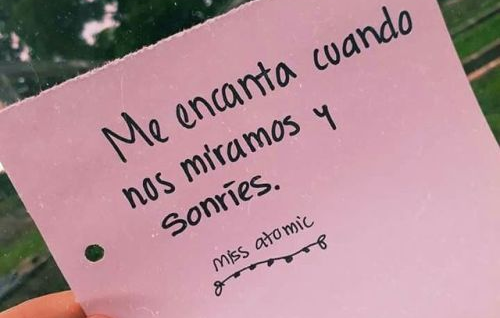 Me encanta cuando
nos miramos y
sonríes.
miss atomic